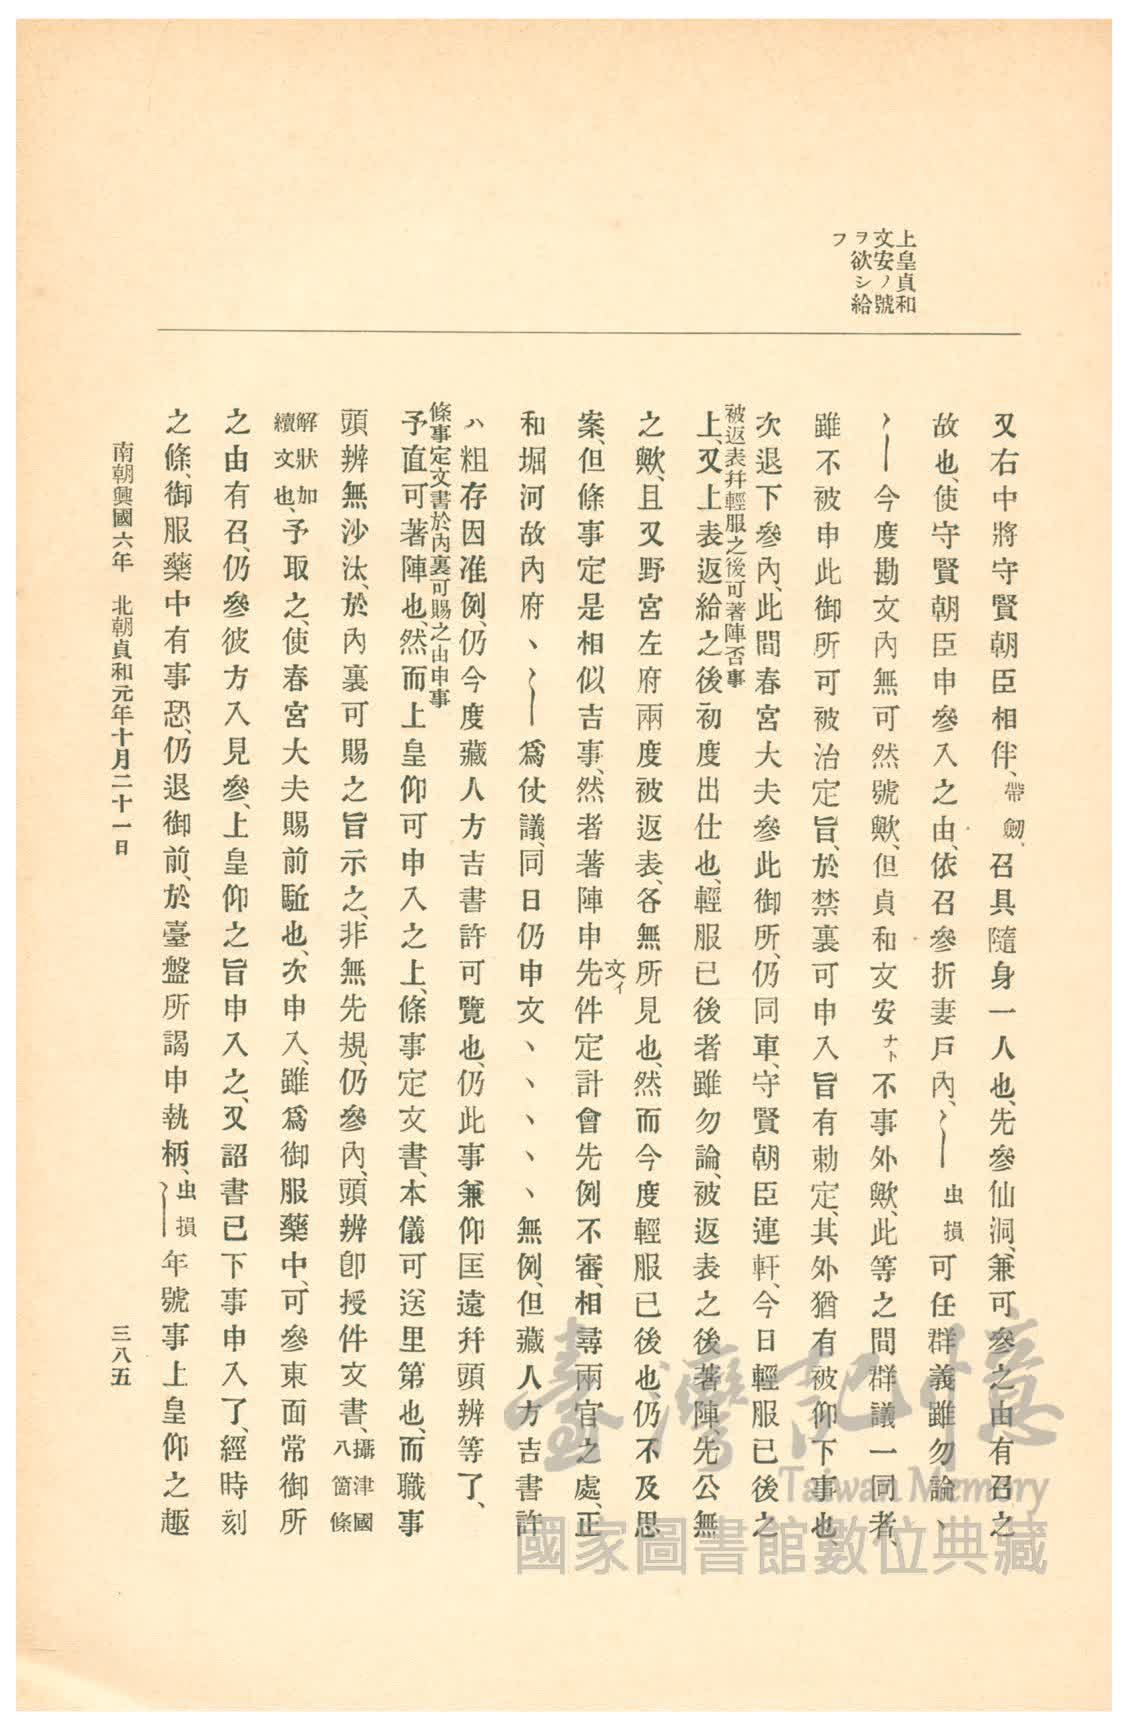 上皇貞和
文安ノ號
ヲ欲シ給
フ
又右中將守賢朝臣相伴、帶劒、召具隨身一人也、先參仙洞、兼可參之由有召之
故也、使守賢朝臣申參入之由、依召參折妻戶內、〻── 虫損 可任群義雖勿論、丶
〻──今度勘文內無可然號歟、但貞和文安ナト不事外歟、此等之間群議一同者、
雖不被申此御所可被治定旨、於禁裏可申入旨有勅定、其外猶有被仰下事也、
次退下參內、此間春宮大夫參此御所、仍同車、守賢朝臣連軒、今日輕服已後之
被返表幷輕服之後可著陣否事
上、又上表返給之後初度出仕也、輕服已後者雖勿論、被返表之後著陣先公無
之歟、且又野宮左府兩度被返表、各無所見也、然而今度輕服已後也、仍不及思
文イ
案、但條事定是相似吉事、然者著陣申先件定計會先例不審、相尋兩官之處、正
和堀河故內府丶〻──爲仗議、同日仍申文丶丶丶丶丶無例、但藏人方吉書許
ハ粗存因准例、仍今度藏人方吉書許可覽也、仍此事兼仰匡遠幷頭辨等了、
條事定文書於內裏可賜之由申事
予直可著陣也、然而上皇仰可申入之上、條事定文書、本儀可送里第也、而職事
頭辨無沙汰、於內裏可賜之旨示之、非無先規、仍參內、頭辨卽授件文書、攝津國八箇條
解狀加續文也、予取之、使春宮大夫賜前駈也、次申入、雖爲御服藥中、可參東面常御所
之由有召、仍參彼方入見參、上皇仰之旨申入之、又詔書已下事申入了、經時刻
之條、御服藥中有事恐、仍退御前、於臺盤所謁申執柄、〻── 虫損 年號事上皇仰之趣
南朝興國六年 北朝貞和元年十月二十一日
三八五
臺灣記憶
Taiwan Memory
國家圖書館數位典藏